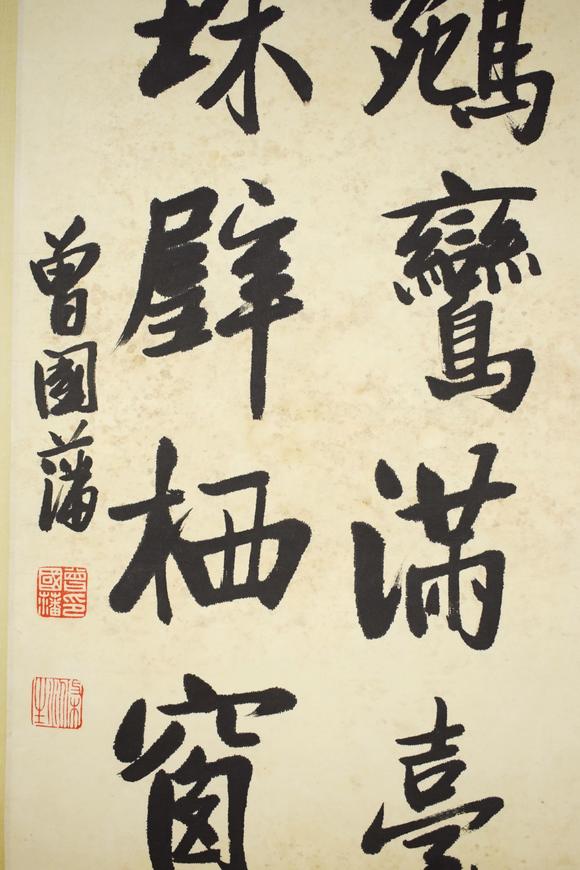 鵷鸞滿臺
珠璧栖窗
曾國藩
曾國藩印
滌生